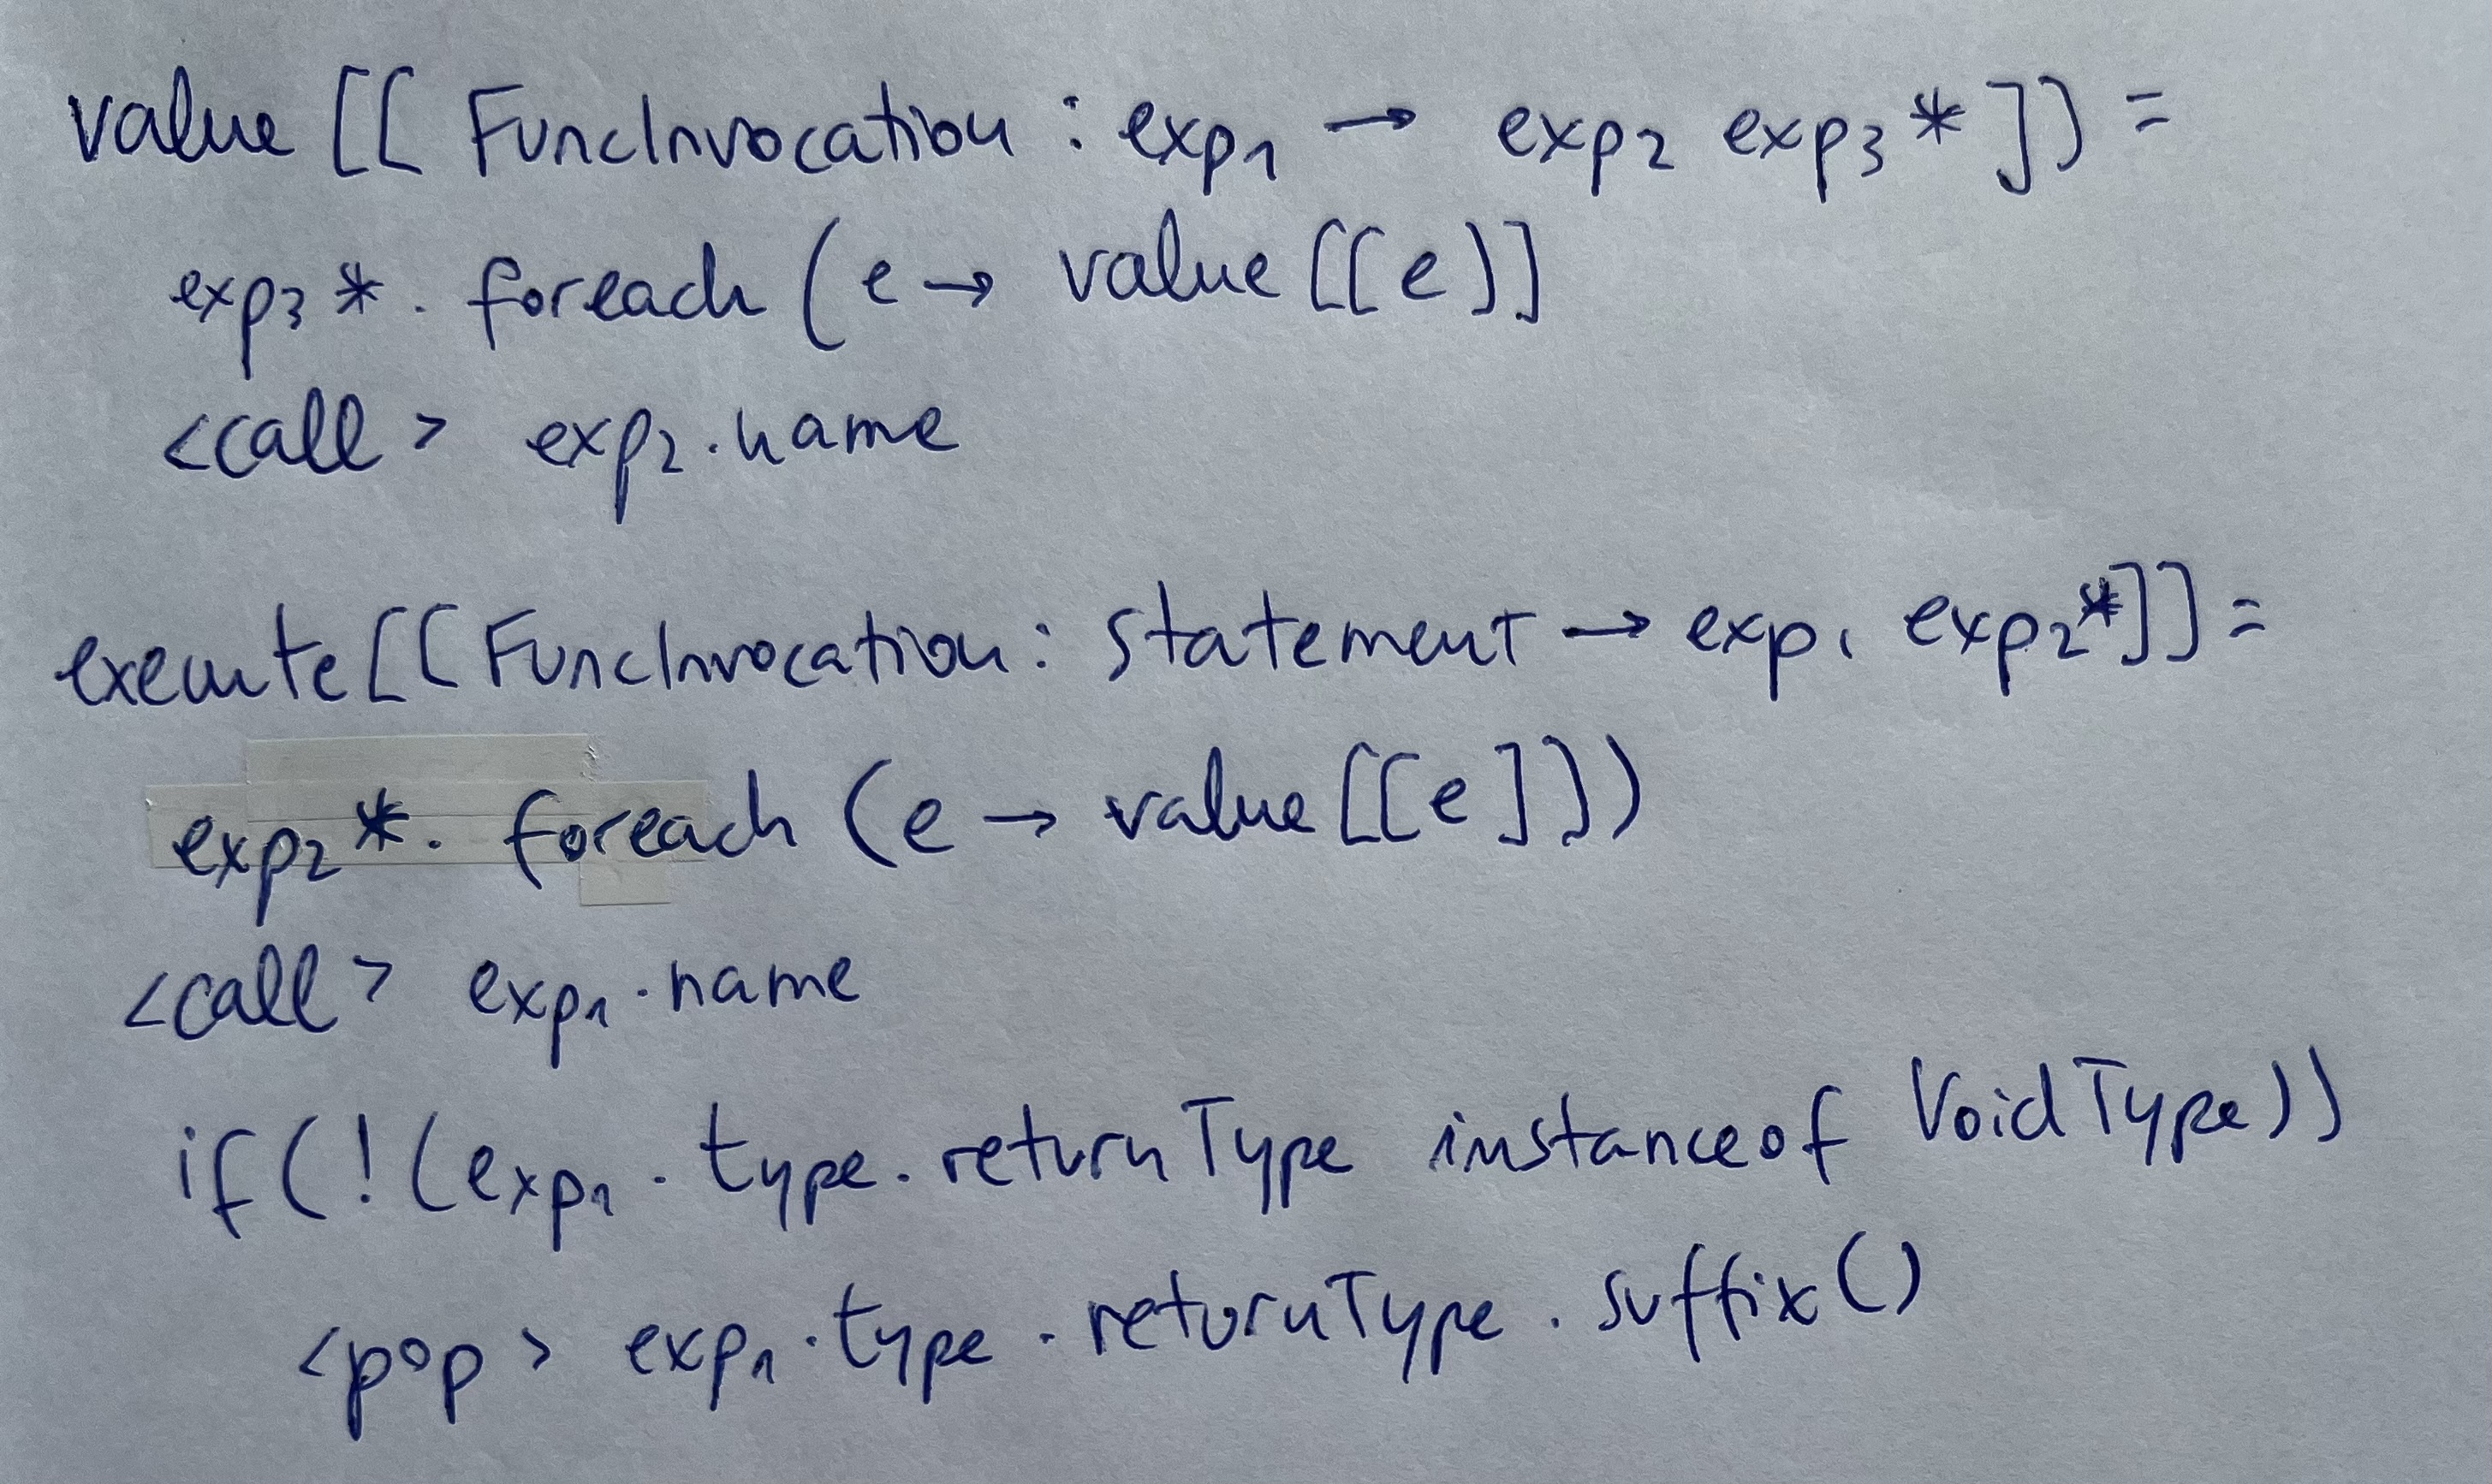 value [[ FuncInvocation : exp1 → exp2 exp3* ]] =
exp3* . foreach (e → value [[e]]
<call> exp2.name
execute [[ FuncInvocation : statement → exp1 exp2* ]] =
exp2* . foreach (e → value [[e]])
<call> exp1.name
if (!(exp1.type.returnType instanceof VoidType))
<pop> exp1.type.returnType.suffix()